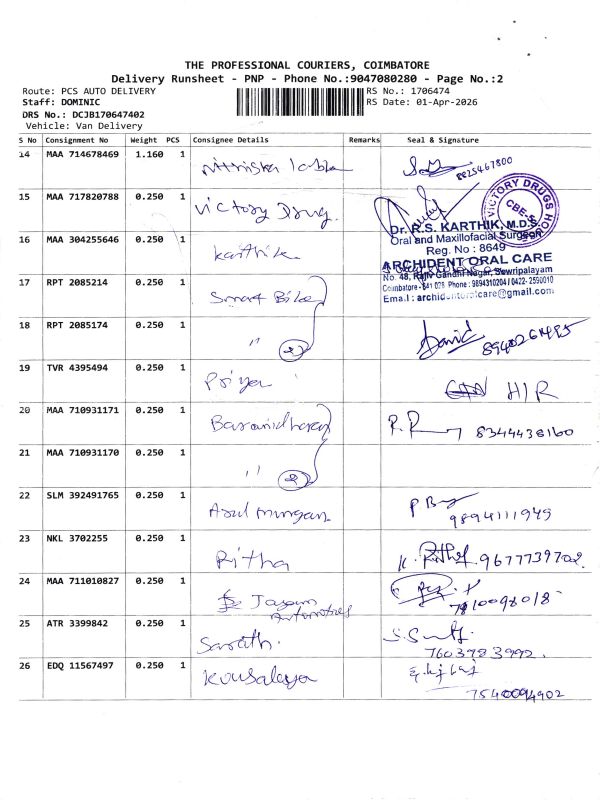 THE PROFESSIONAL COURIERS, COIMBATORE
Delivery Runsheet - PNP - Phone No.:9047080280 - Page No.:2
Route: PCS AUTO DELIVERY RS No.: 1706474
Staff: DOMINIC RS Date: 01-Apr-2026
DRS No.: DCJB170647402
Vehicle: Van Delivery
S No Consignment No Weight PCS Consignee Details Remarks Seal & Signature
14 MAA 714678469 1.160 1
8825467800
15 MAA 717820788 0.250 1 Victory Drug.
VICTORY DRUGS HOUSE
CBE-5
Dr. R.S. KARTHIK, M.D.S
Oral and Maxillofacial Surgeon
Reg. No : 8649
16 MAA 304255646 0.250 1 Karthik
ARCHIDENT ORAL CARE
No. 48, Rajiv Gandhi Nagar, Sowripalayam
Coimbatore - 641 028 Phone : 9894310204 / 0422- 2590010
Email : archidentoralcare@gmail.com
17 RPT 2085214 0.250 1 Smart Bike
18 RPT 2085174 0.250 1 " 2 David
8940261495
19 TVR 4395494 0.250 1 Priya H/R
20 MAA 710931171 0.250 1 Baranidharan 8344438160
21 MAA 710931170 0.250 1 " 2
22 SLM 392491765 0.250 1 Arul murugan
9894111949
23 NKL 3702255 0.250 1 Ritha K. Ritha 9677739702
24 MAA 711010827 0.250 1 Jayam
Automotives 7810098018
25 ATR 3399842 0.250 1 Sarath.
7603983992.
26 EDQ 11567497 0.250 1 Kousalaya
7540094902